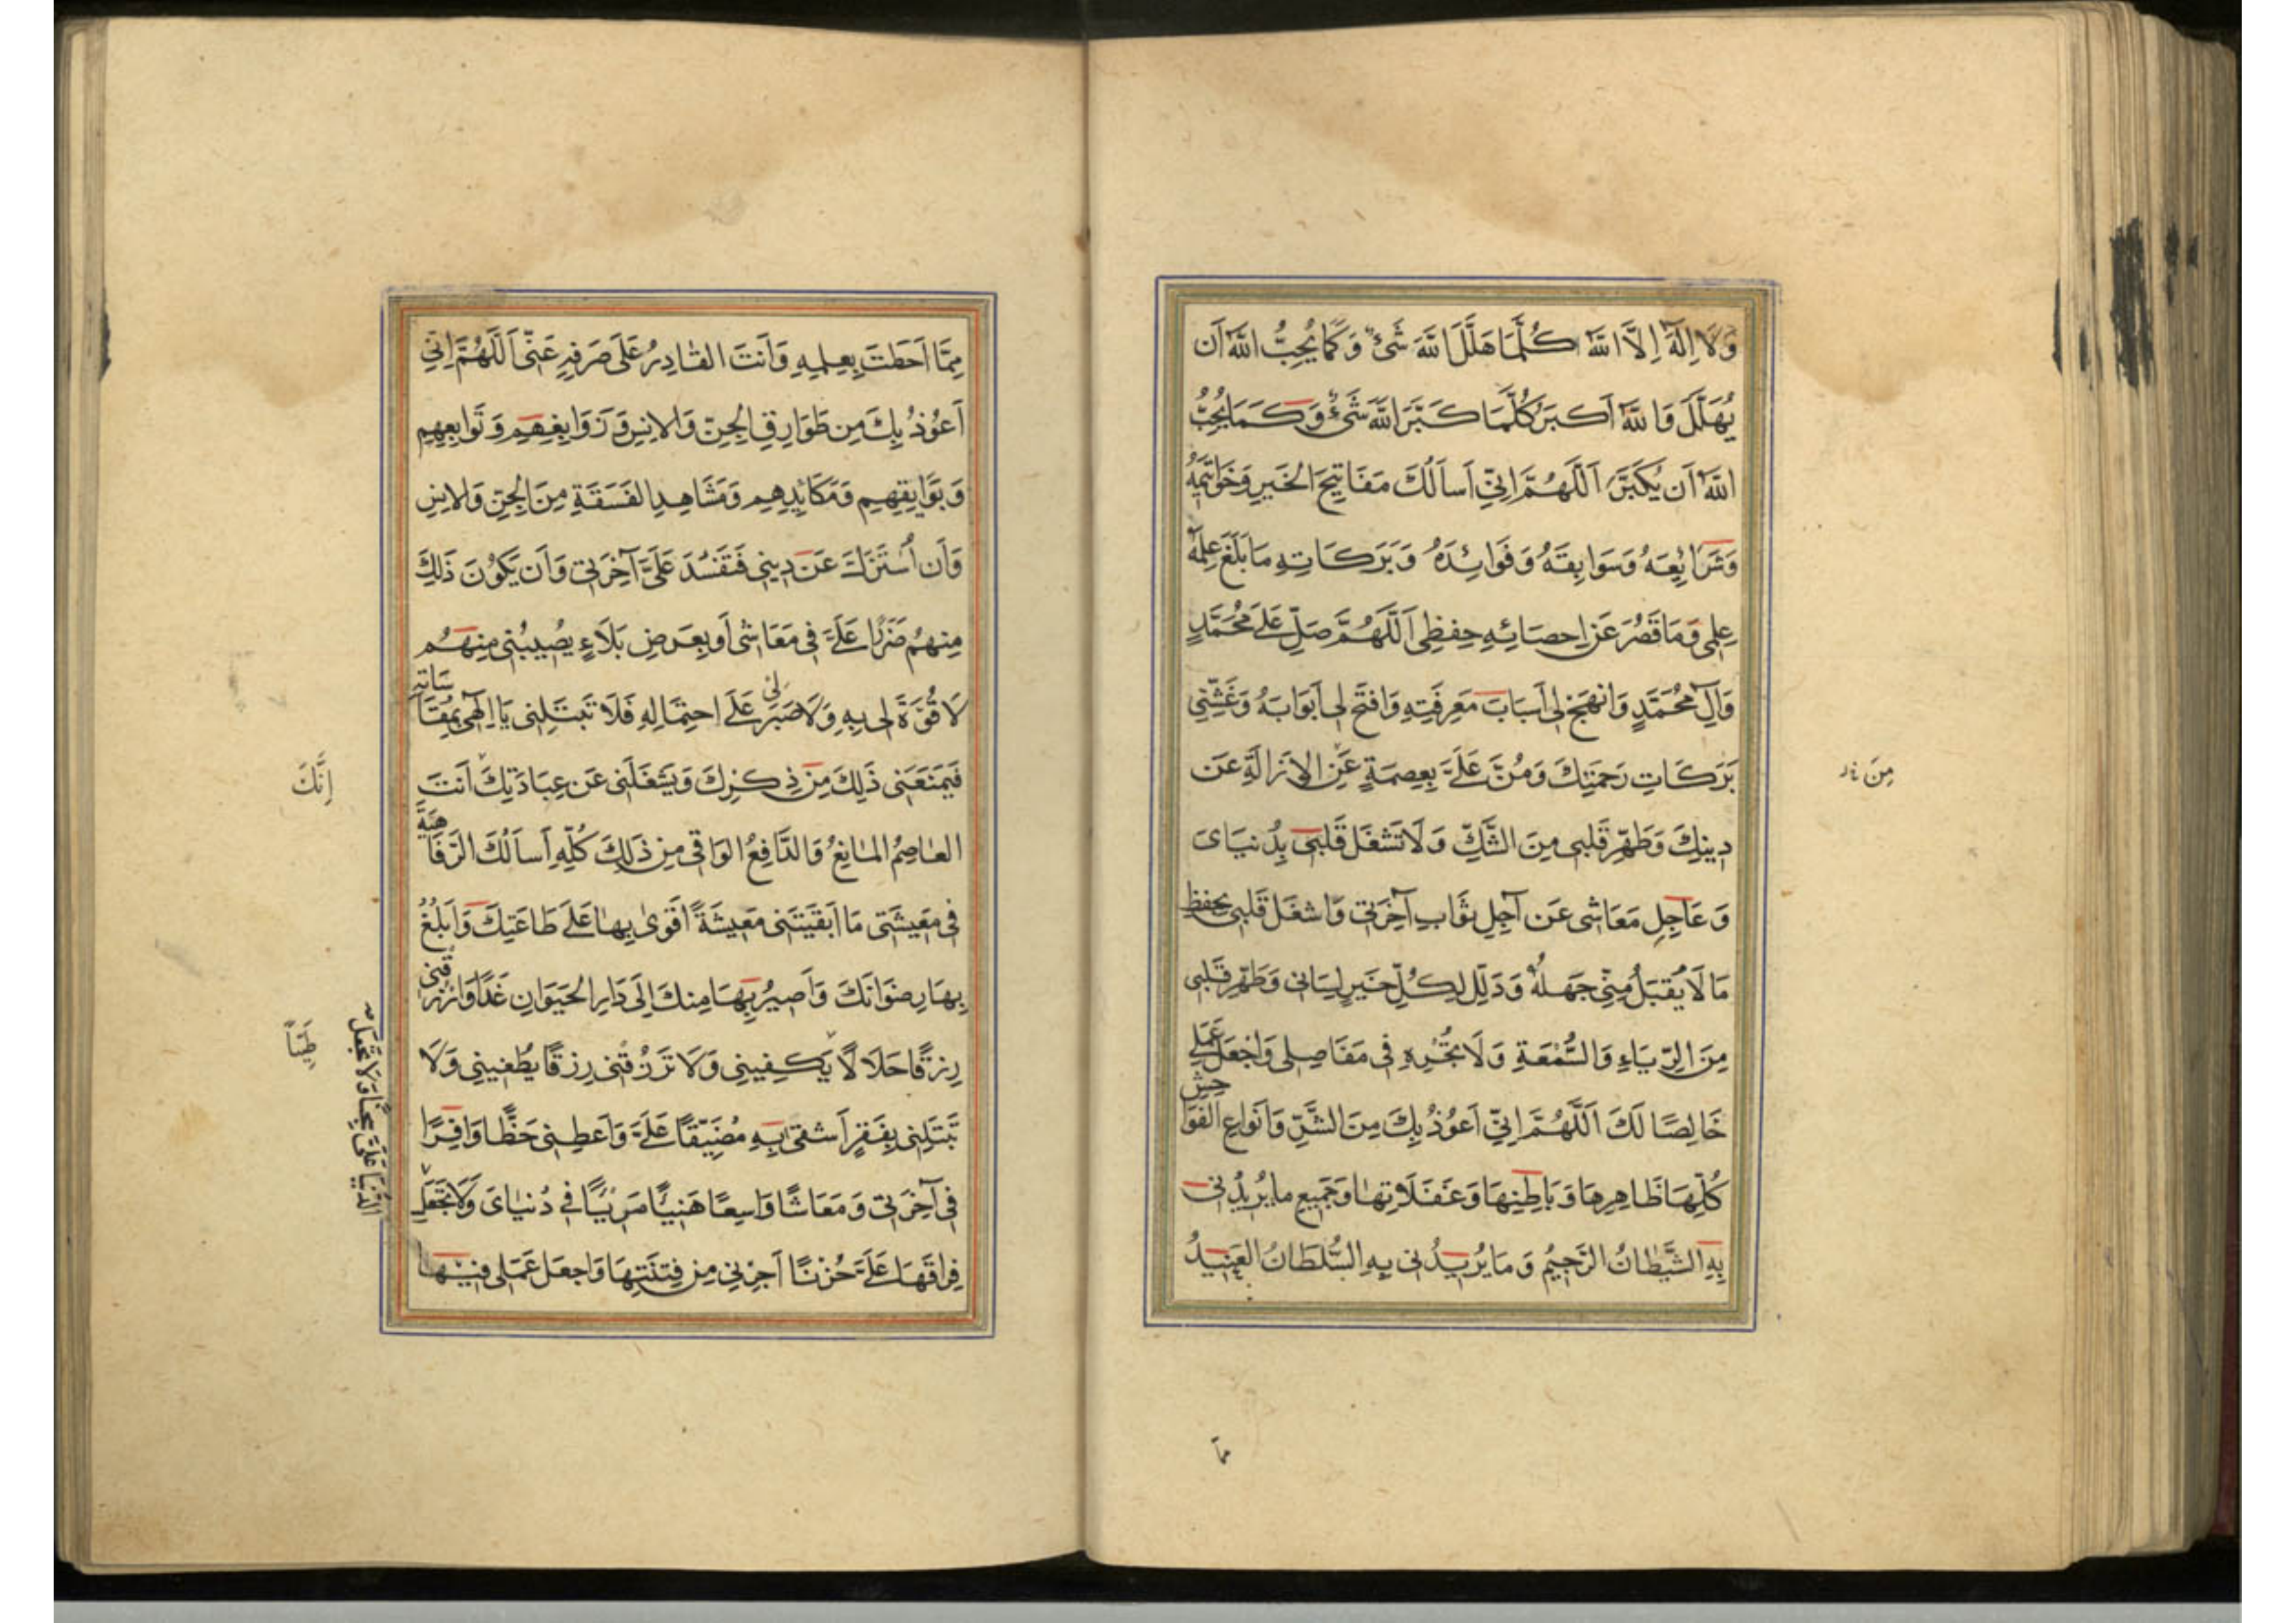 وَلَا اِلٰهَ اِلَّا اللّٰهُ كُلَّمَا هَلَّلَ اللّٰهَ شَیْءٌ وَكَمَا یُحِبُّ اللّٰهُ اَن
یُهَلَّلَ وَاللّٰهُ اَكبَرُ كُلَّمَا كَبَّرَ اللّٰهَ شَیْءٌ وَكَمَا یُحِبُّ
اللّٰهُ اَن یُكَبَّرَ اَللّٰهُمَّ اِنّی اَسأَلُكَ مَفَاتِیحَ الخَیرِ وَخَوَاتِیمَهُ
وَشَرَائِعَهُ وَسَوَابِقَهُ وَفَوَائِدَهُ وَبَرَكَاتِهِ مَا بَلَغَ عِلمَهُ
عِلمِی وَمَا قَصُرَ عَن اِحصَائِهِ حِفظِی اَللّٰهُمَّ صَلِّ عَلٰی مُحَمَّدٍ
وَآلِ مُحَمَّدٍ وَانهَج لِی اَسبَابَ مَعرِفَتِهِ وَافتَح لِی اَبوَابَهُ وَغَشِّنِی
بَرَكَاتِ رَحمَتِكَ وَمُنَّ عَلَیَّ بِعِصمَةٍ عَنِ الاِزَالَةِ عَن
مِنَ
دِینِكَ وَطَهِّر قَلبِی مِنَ الشَّكِّ وَلَا تَشغَل قَلبِی بِدُنیَایَ
وَعَاجِلِ مَعَاشِی عَن آجِلِ ثَوَابِ آخِرَتِی وَاشغَل قَلبِی بِحِفظِ
مَا لَا یُقبَلُ مِنِّی جَهلُهُ وَذَلِّل لِكُلِّ خَیرٍ لِسَانِی وَطَهِّر قَلبِی
مِنَ الرِّیَاءِ وَالسُّمْعَةِ وَلَا تُجْرِهِ فِی مَفَاصِلِی وَاجعَل عَمَلِی
خَالِصًا لَكَ اَللّٰهُمَّ اِنّی اَعُوذُ بِكَ مِنَ الشَّرِّ وَاَنوَاعِ الفَوَاحِشِ
كُلِّهَا ظَاهِرِهَا وَبَاطِنِهَا وَغَفَلَاتِهَا وَجَمِیعِ مَا یُرِیدُنِی
بِهِ الشَّیْطَانُ الرَّجِیمُ وَمَا یُرِیدُنِی بِهِ السُّلطَانُ العَنِیدُ
مِمَّا
مِمَّا اَحَطتَ بِعِلمِهِ وَاَنتَ القَادِرُ عَلَی صَرفِهِ عَنِّی اَللّٰهُمَّ اِنّی
اَعُوذُ بِكَ مِن طَوَارِقِ الجِنِّ وَالاِنسِ وَزَوَابِعِهِم وَتَوَابِعِهِم
وَبَوَایِقِهِم وَمَكَایِدِهِم وَمَشَاهِدِ الفَسَقَةِ مِنَ الجِنِّ وَالاِنسِ
وَاَن اُستَزَلَّ عَن دِینِی فَتَفسُدَ عَلَیَّ آخِرَتِی وَاَن یَكُونَ ذَلِكَ
مِنهُم ضَرَرًا عَلَیَّ فِی مَعَاشِی اَو بِعَرَضِ بَلَاءٍ یُصِیبُنِی مِنهُم
لَا قُوَّةَ لِی بِهِ وَلَا صَبرَ لِی عَلَی احتِمَالِهِ فَلَا تَبتَلِنِی یَا اِلٰهِی بِمُقَاسَاتِهِ
فَیَمنَعَنِی ذَلِكَ مِن ذِكرِكَ وَیَشغَلَنِی عَن عِبَادَتِكَ اَنتَ
اِنَّكَ
العَاصِمُ المَانِعُ وَالدَّافِعُ الوَاقِی مِن ذَلِكَ كُلِّهِ اَسأَلُكَ الرَّفَاهِیَةَ
فِی مَعِیشَتِی مَا اَبقَیتَنِی مَعِیشَةً اَقوٰی بِهَا عَلَی طَاعَتِكَ وَاَبلُغُ
بِهَا رِضوَانَكَ وَاَصِیرُ بِهَا مِنكَ اِلَی دَارِ الحَیَوَانِ غَدًا وَارزُقنِی
رِزقًا حَلَالًا یَكفِینِی وَلَا تَرزُقنِی رِزقًا یُطغِینِی وَلَا
طَیِّبًا
تَبتَلِنِی بِفَقرٍ اَشقٰی بِهِ مُضَیِّقًا عَلَیَّ وَاَعطِنِی حَظًّا وَافِرًا
فِی آخِرَتِی وَمَعَاشًا وَاسِعًا هَنِیئًا مَرِیئًا فِی دُنیَایَ وَلَا تَجعَل
الدُّنیَا عَلَیَّ سِجنًا وَلَا تَجعَل
فِرَاقَهَا عَلَیَّ حُزنًا اَجِرنِی مِن فِتنَتِهَا وَاجعَل عَمَلِی فِیهَا